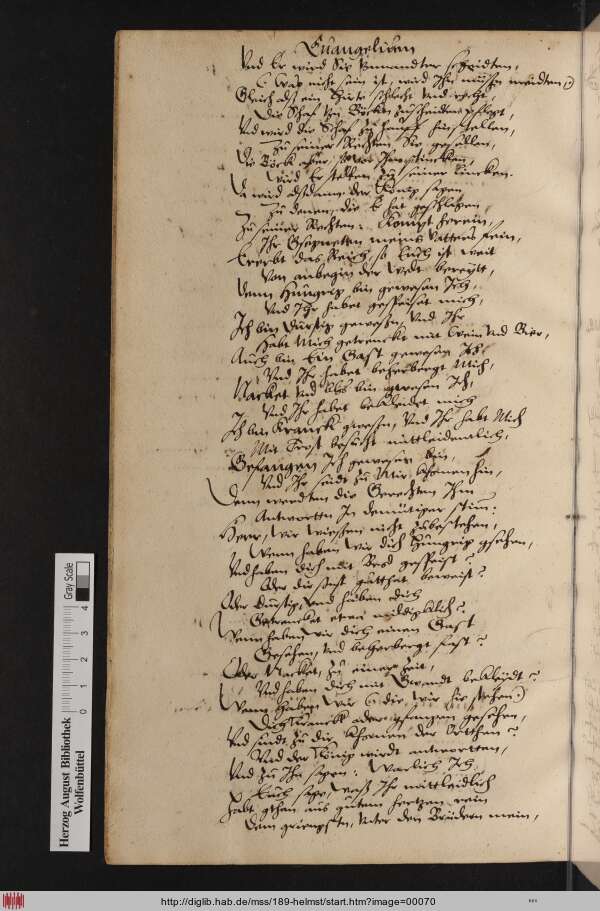 Euangelium
Vnd Er wird Sie voneinander scheidten,
Gleich alß ein Hirte schlecht vnd recht,
Die Schaf von Böcken zuscheiden pflegt,
Vnd wird die Schaf zu haupt hinstellen,
Zu seiner Rechten, Die gesellen,
Die Böck aber
Wird Er stellen zu seiner Lincken.
Da wird alßdann der König sagen
Zu denen, die Er hat geschlagen,
Zu seiner Rechten: Kompt herein,
Ihr Gsegneten meins Vatters fein,
Ererbt das Reich, so Euch ist weit
Von anbegin der Welt bereytt,
Denn Hungrig bin gewesen Ich,
Vnd Ihr habet gespeiset mich,
Ich bin Durstig gewesen, Vnd Ihr
Habt Mich getrenckt mit Wein vnd Bier,
Auch bin Ein Gast gewesen Ich
Vnd Ihr habet beherbergt Mich,
Nacket vnd blos bin gewesen Ich,
Vnd Ihr habet bekleidet mich
Ich bin Kranck gwesen, Vnd Ihr habt Mich
Mit Trost besucht mittleidenlich,
Gefangen Ich gewesen bin,
Vnd Ihr seidt zu Mir khomen hin,
Denn werdten die Gerechten Ihm
Antwortten In demütiger stim:
Herr, Wir wissen nicht zubestehen,
Wenn haben Wir dich Hungrig gsehen,
Vnd haben dich mit Brod gespeist?
Oder die Gutthat beweist?
Oder Durstig, vnd haben dich
Getrencket etwa mildigklich?
Wenn haben wir dich einen Gast
Gesehen, vnd beherbergt fast?
Oder Nacket, zu einer Zeit,
Vnd haben dich mit Gwandt bekleydt?
Wenn haben Wir (die wir hie stehen)
Dich Kranck oder gfangen gesehen,
Vnd sindt zu dir khomen der Ortthen?
Vnd der König wirdt antwortten,
Vnd zu Ihn sagen: Warlich Ich
Euch sage, waß Ihr mittleidlich
Habt gthan aus gutem hertzen rein
Dem gringsten, Vnter den Brüdern mein,
Herzog August Bibliothek
Wolfenbüttel
Gray Scale
0 1 2 3 4
http://diglib.hab.de/mss/189-helmst/start.htm?image=00070